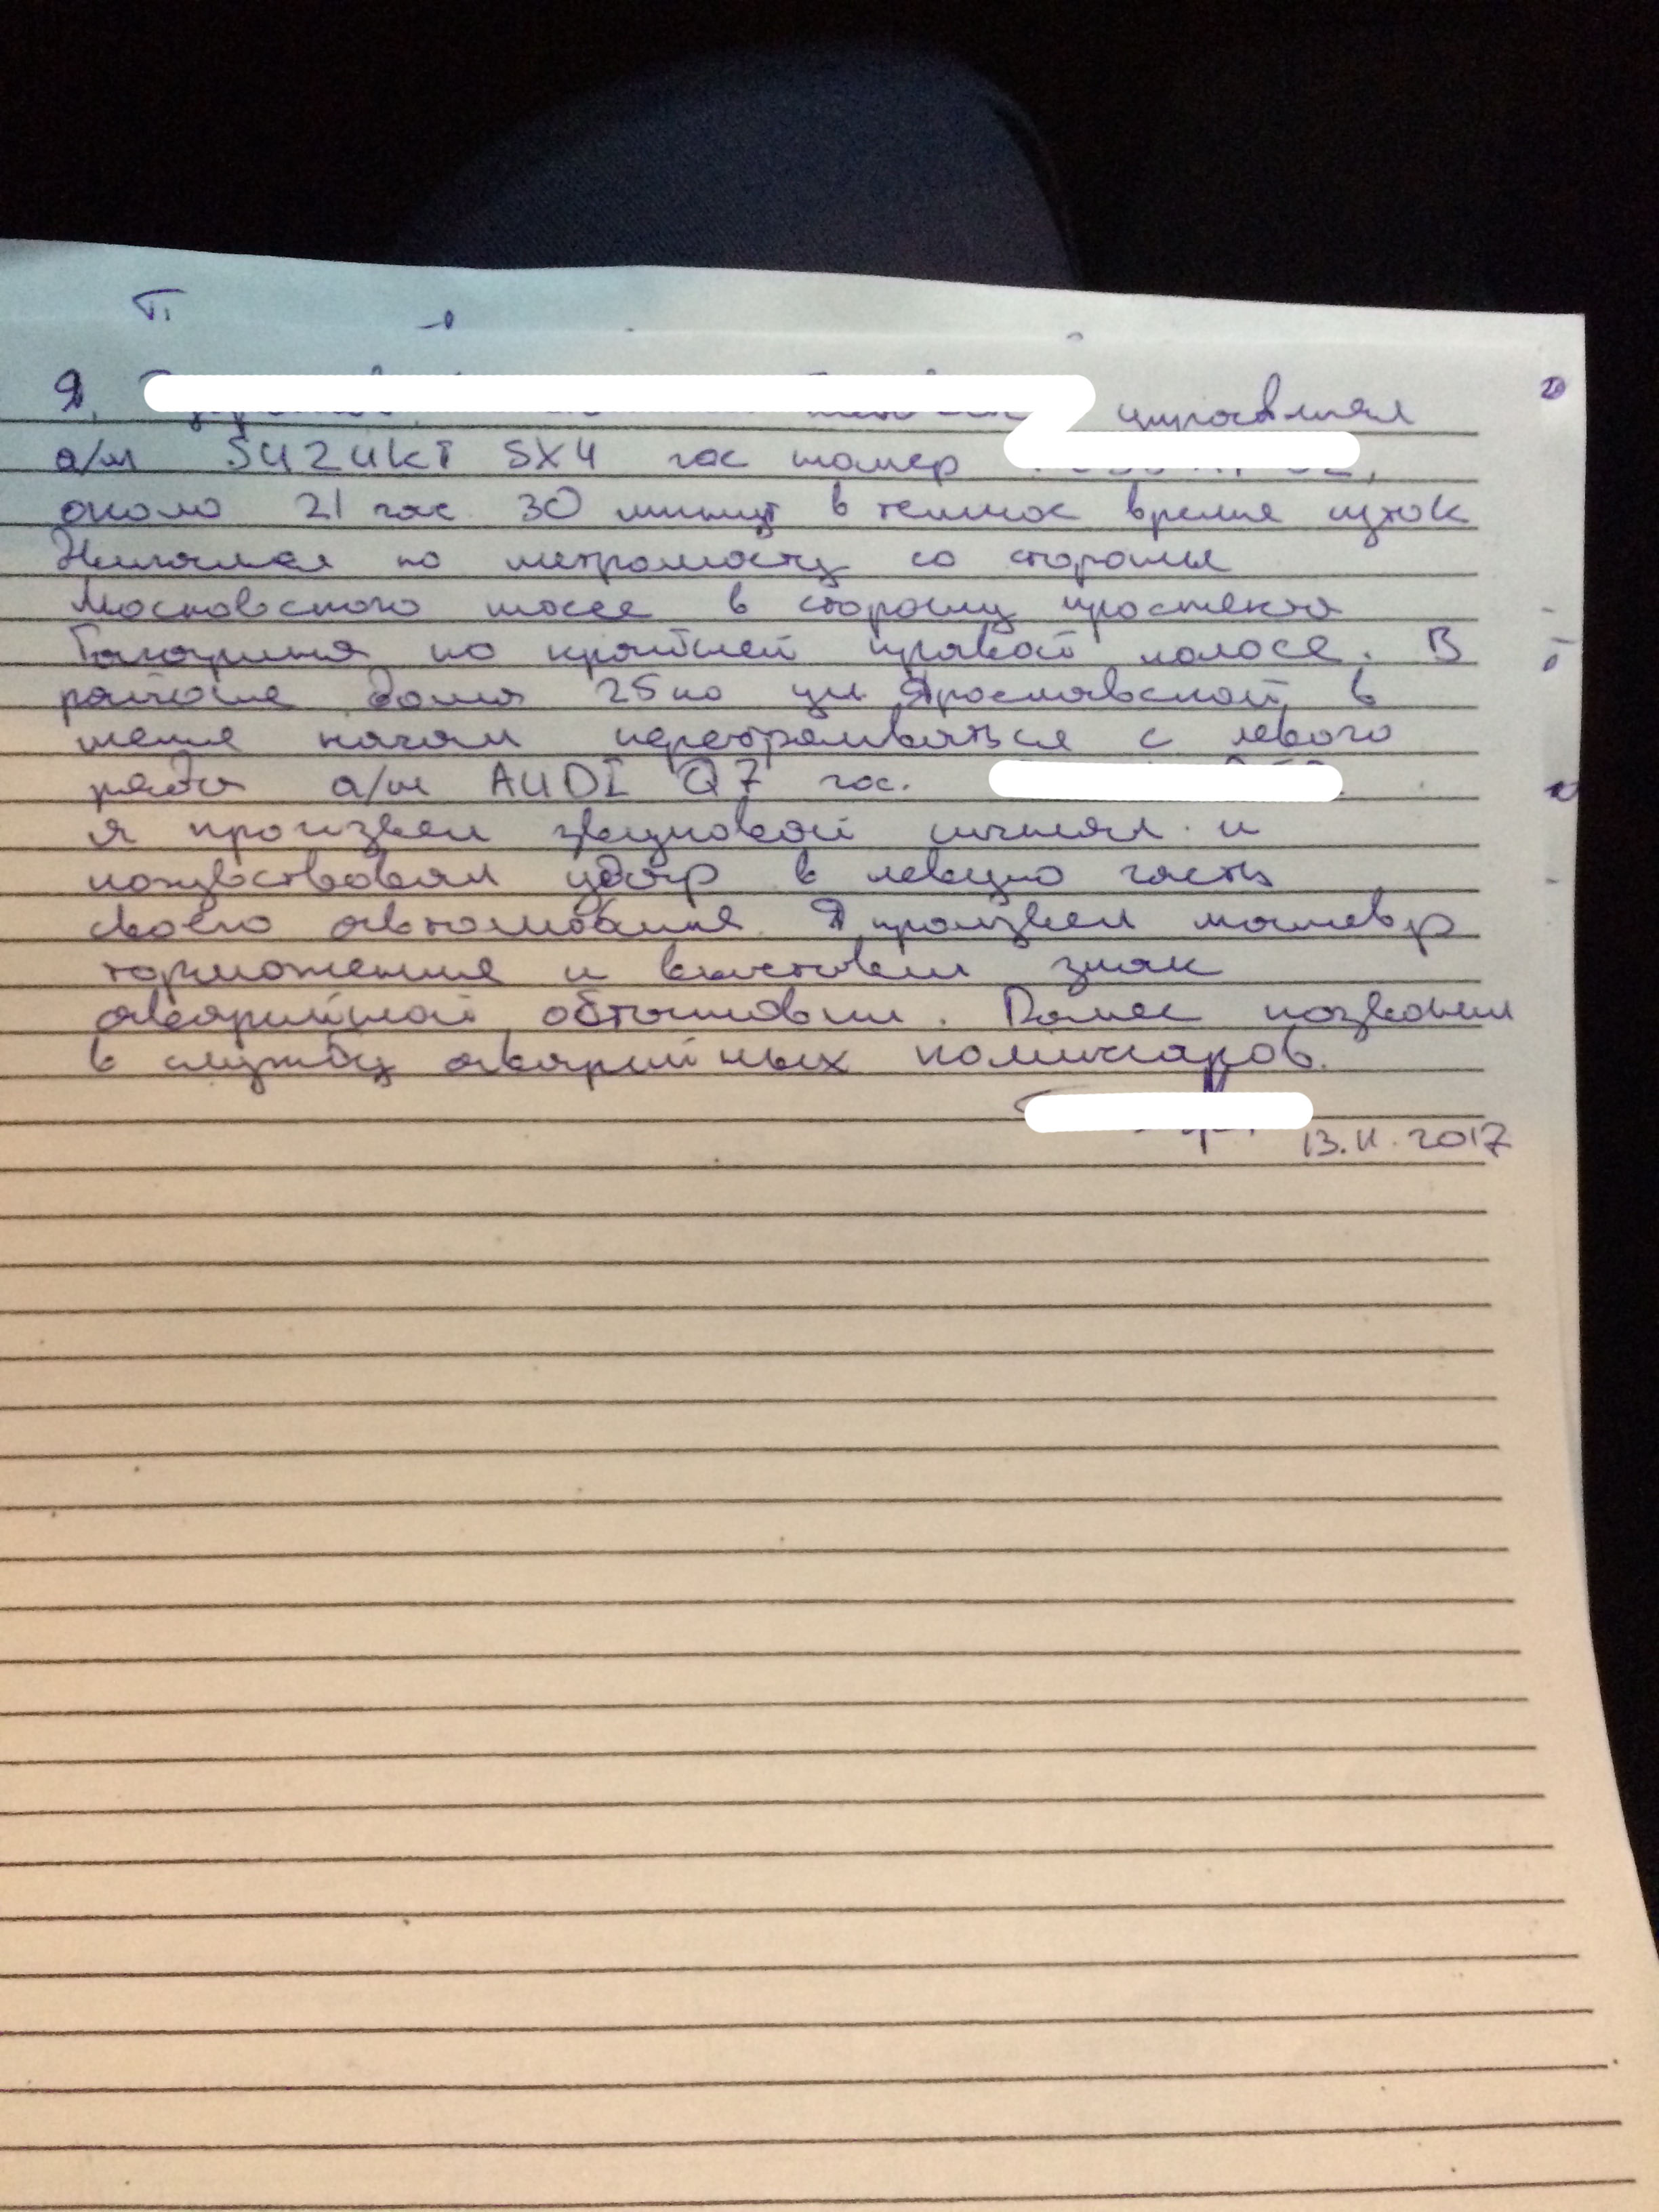 Я, управлял
а/м SUZUKI SX4 гос номер
около 21 час 30 минут в темное время суток
Двигался по метромосту со стороны
Московского шоссе в сторону проспекта
Гагарина по крайней правой полосе. В
районе дома 25 по ул Ярославской, в
меня начал перестраиваться с левого
ряда а/м AUDI Q7 гос.
я произвел звуковой сигнал и
почувствовал удар в левую часть
своего автомобиля. Я произвел маневр
торможения и выставил знак
аварийной обстановки. Далее позвонил
в службу аварийных комиссаров.
13.11.2017